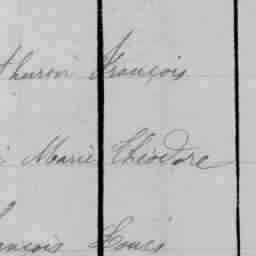 thurin François
Marie Théodore
ançois Louis